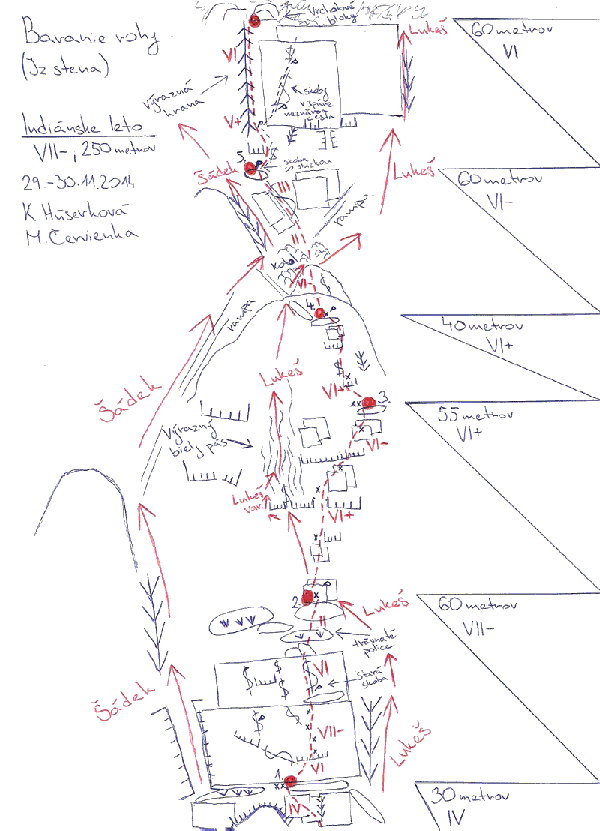 Baranie rohy
(JZ stena)
Indiánske leto
VII-, 250 metrov
29.-30.11.2014
K. Húserková
M. Červienka
bloky
Lukáš
60 metrov
VI
VI
výrazná
hrana
V+
5.
Šádek
III
Lukeš
60 metrov
VI-
rampa
II
VI-
rampa
4.
40 metrov
VI+
Lukeš
Šádek
VI+
3.
55 metrov
VI+
Výrazný
biely pás
VI-
Lukeš
var.
VI+
2.
II
Lukeš
60 metrov
VII-
trávnaté
police
VI
stará
skoba
Šádek
VII-
Lukeš
VI
1.
30 metrov
IV
IV